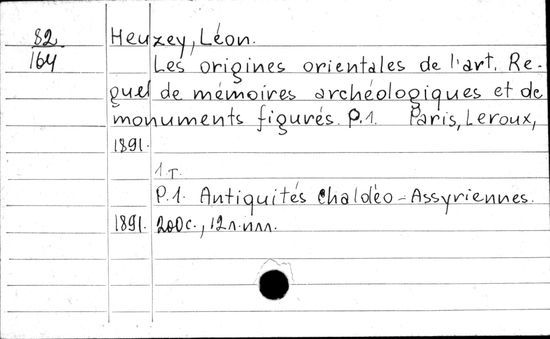 82
164
Heuzey, Léon.
Les origines orientales de l'art. Re-
quel de mémoires archéologiques et de
monuments figurés. P.1. Paris, Leroux,
1891.
1 т.
P.1. Antiquités Chaldéo-Assyriennes.
1891. 200с., 12л.илл.